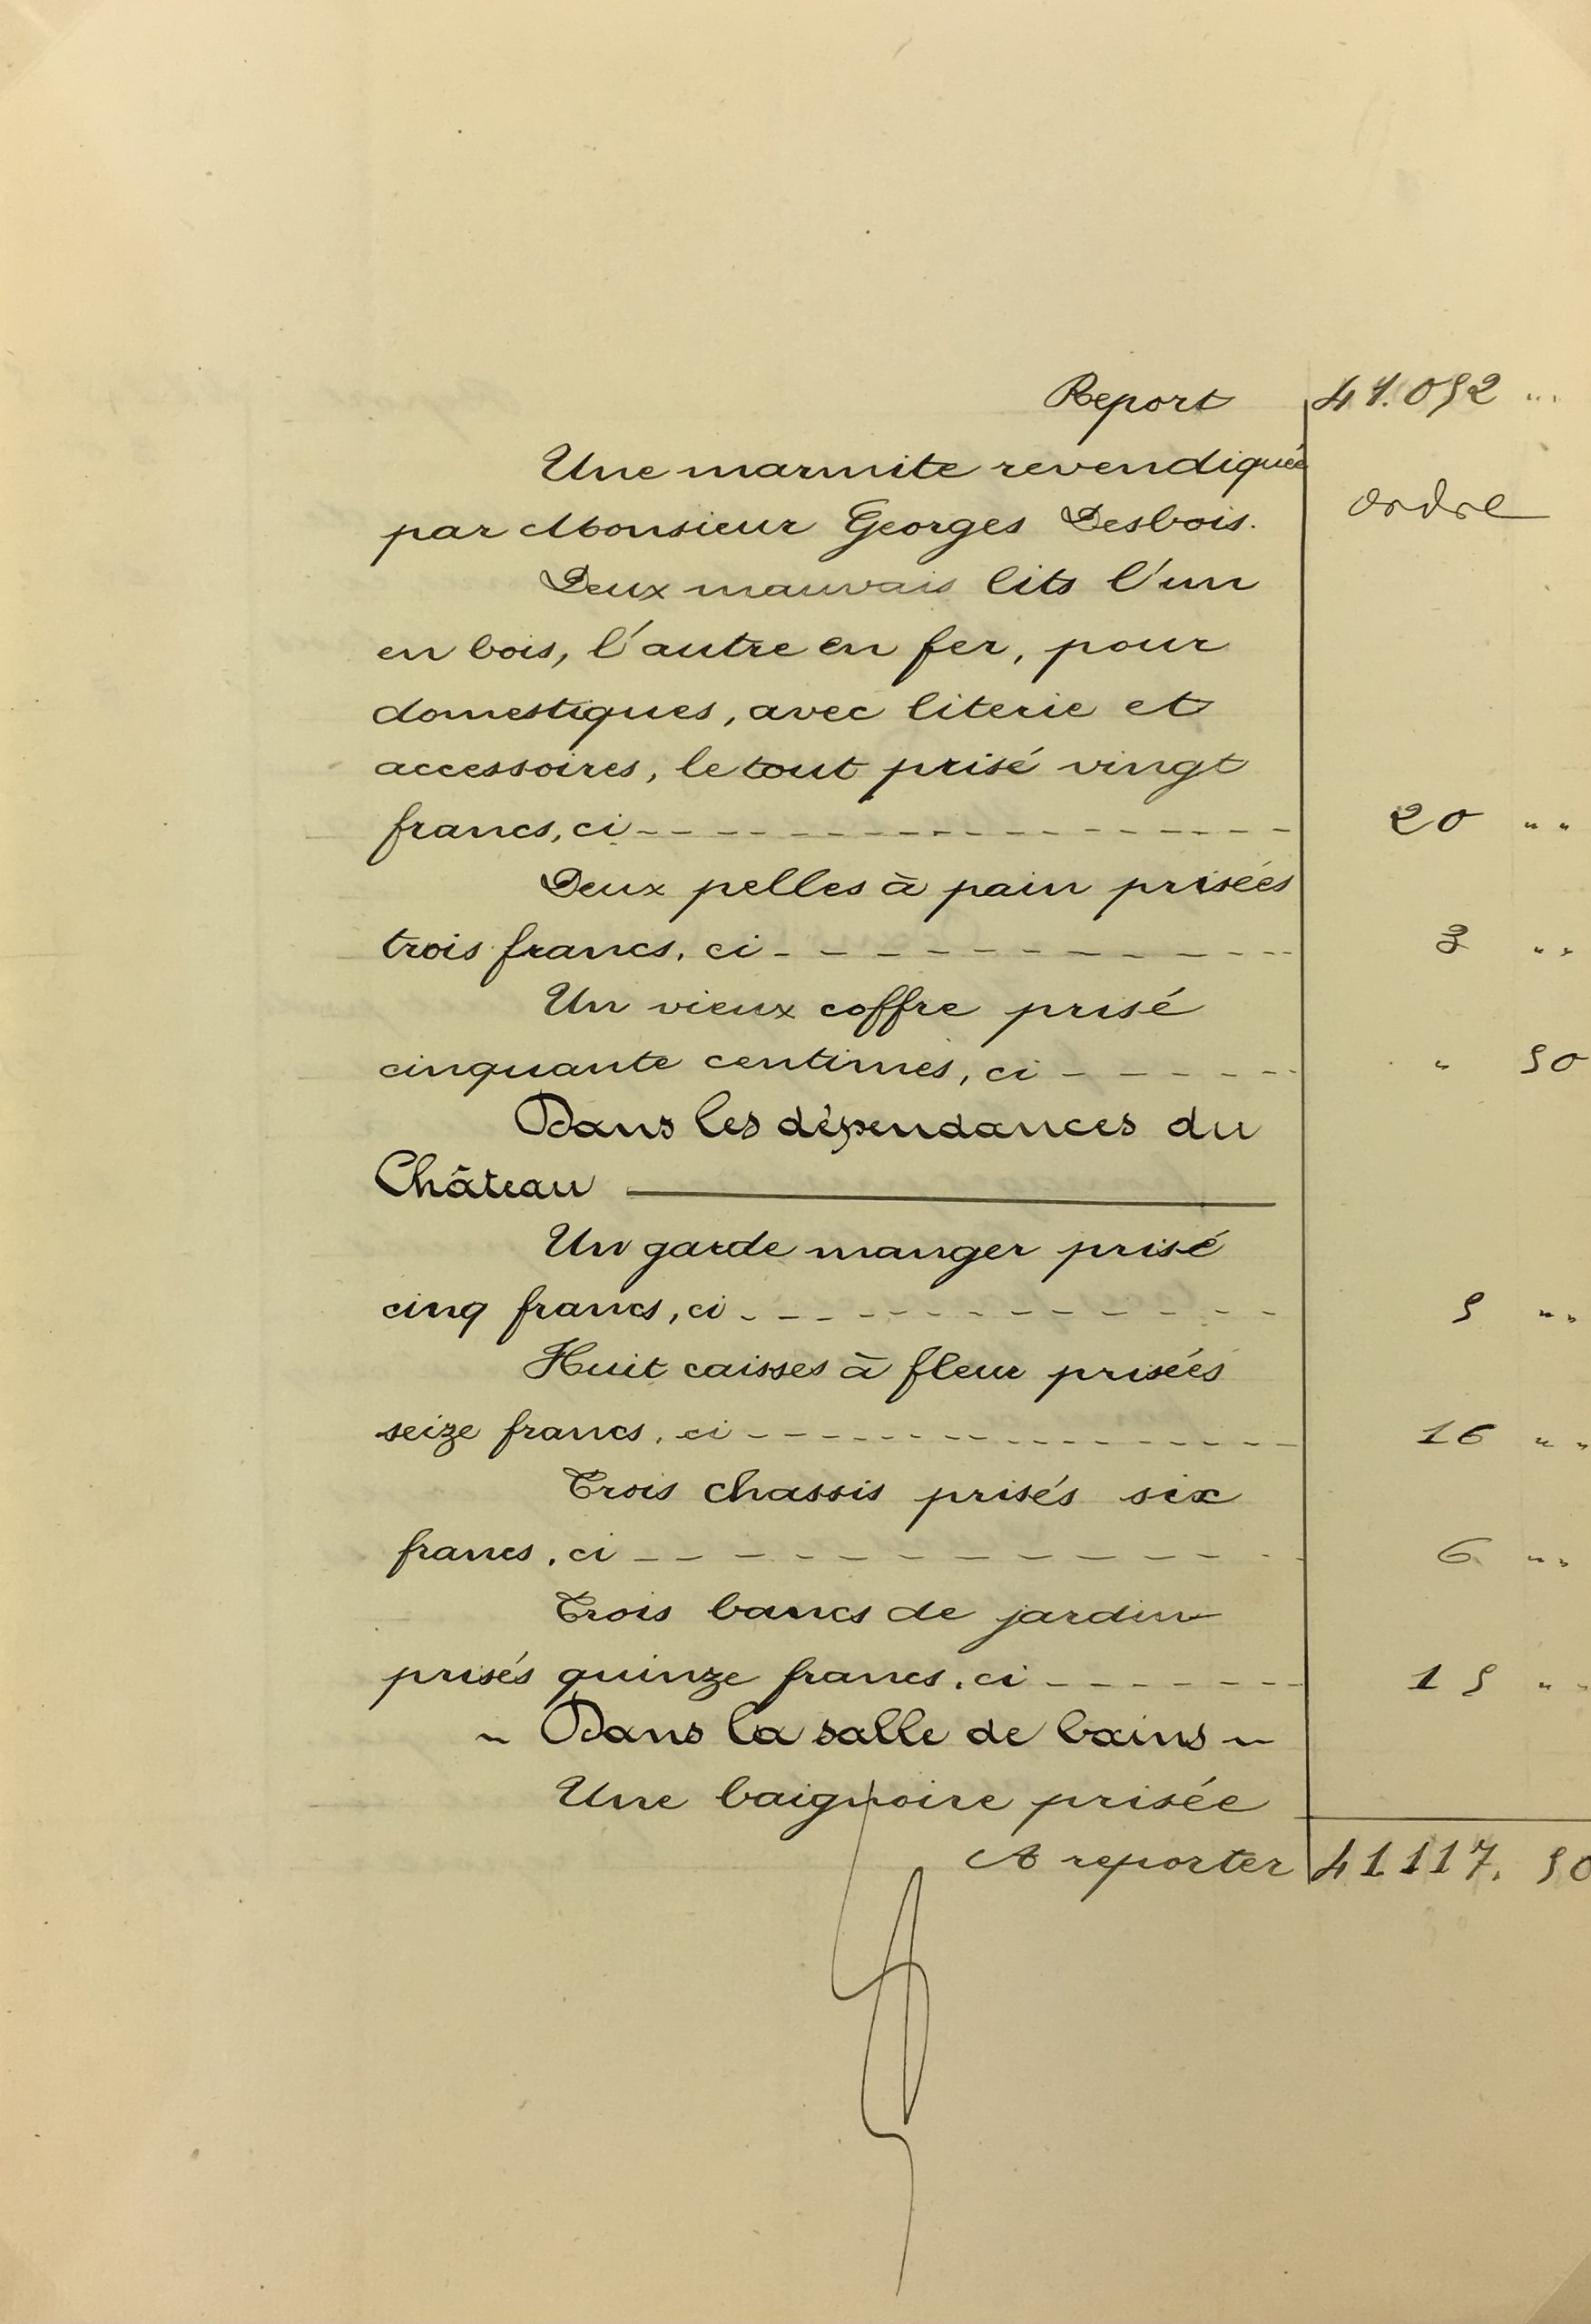 Report 41.052 "
Une marmite revendiquée
par Monsieur Georges Desbois. ordre
Deux mauvais lits l'un
en bois, l'autre en fer, pour
domestiques, avec literie et
accessoires, le tout prisé vingt
francs, ci 20 "
Deux pelles à pain prisées
trois francs, ci 3 "
Un vieux coffre prisé
cinquante centimes, ci " 50
Dans les dépendances du
Château
Un garde manger prisé
cinq francs, ci 5 "
Huit caisses à fleur prisées
seize francs, ci 16 "
Trois chassis prisés six
francs, ci 6 "
Trois bancs de jardin
prisés quinze francs, ci 15 "
~ Dans la salle de bains ~
Une baignoire prisée
A reporter 41117. 50